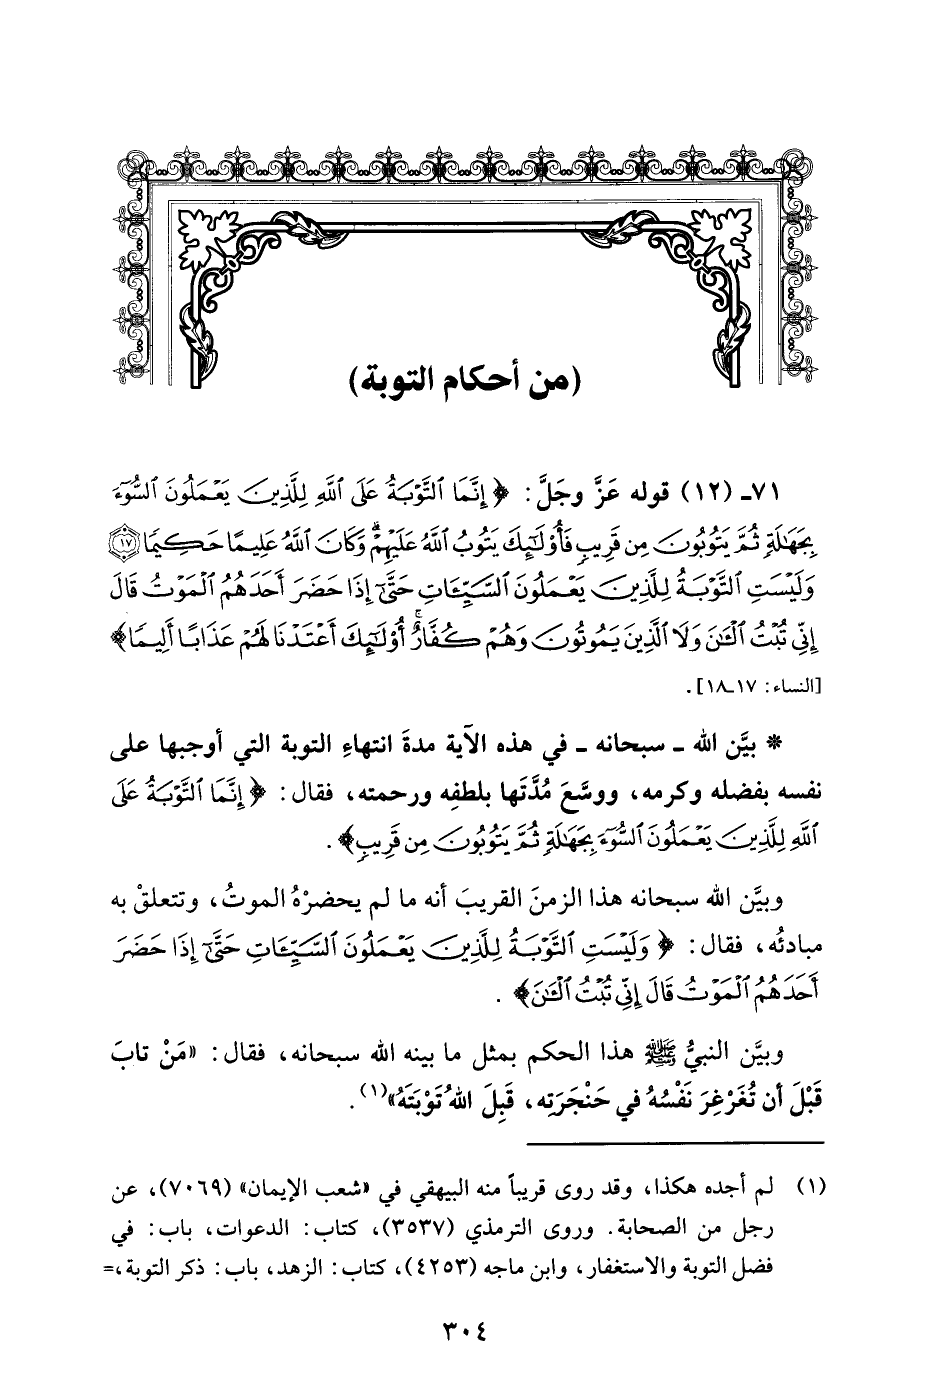 (من أحكام التوبة)
٧١ـ (١٢) قوله عَزَّ وجَلَّ: ﴿ إِنَّمَا ٱلتَّوْبَةُ عَلَى ٱللَّهِ لِلَّذِينَ يَعْمَلُونَ ٱلسُّوٓءَ
بِجَهَٰلَةٍ ثُمَّ يَتُوبُونَ مِن قَرِيبٍ فَأُو۟لَٰٓئِكَ يَتُوبُ ٱللَّهُ عَلَيْهِمْ ۗ وَكَانَ ٱللَّهُ عَلِيمًا حَكِيمًا ١٧
وَلَيْسَتِ ٱلتَّوْبَةُ لِلَّذِينَ يَعْمَلُونَ ٱلسَّيِّـَٔاتِ حَتَّىٰٓ إِذَا حَضَرَ أَحَدَهُمُ ٱلْمَوْتُ قَالَ
إِنِّى تُبْتُ ٱلْـَٰٔنَ وَلَا ٱلَّذِينَ يَمُوتُونَ وَهُمْ كُفَّارٌ ۚ أُو۟لَٰٓئِكَ أَعْتَدْنَا لَهُمْ عَذَابًا أَلِيمًا﴾
[النساء: ١٧ـ١٨].
* بيَّن الله ـ سبحانه ـ في هذه الآية مدةَ انتهاءِ التوبة التي أوجبها على
نفسه بفضله وكرمه، ووسَّعَ مُدَّتَها بلطفِه ورحمته، فقال: ﴿ إِنَّمَا ٱلتَّوْبَةُ عَلَى
ٱللَّهِ لِلَّذِينَ يَعْمَلُونَ ٱلسُّوٓءَ بِجَهَٰلَةٍ ثُمَّ يَتُوبُونَ مِن قَرِيبٍ﴾.
وبيَّن الله سبحانه هذا الزمنَ القريبَ أنه ما لم يحضرْهُ الموتُ، وتتعلقْ به
مبادئُه، فقال: ﴿ وَلَيْسَتِ ٱلتَّوْبَةُ لِلَّذِينَ يَعْمَلُونَ ٱلسَّيِّـَٔاتِ حَتَّىٰٓ إِذَا حَضَرَ
أَحَدَهُمُ ٱلْمَوْتُ قَالَ إِنِّى تُبْتُ ٱلْـَٰٔنَ﴾.
وبيَّن النبيُّ ﷺ هذا الحكم بمثل ما بينه الله سبحانه، فقال: «مَنْ تابَ
قَبْلَ أن تُغَرْغِرَ نَفْسُهُ في حَنْجَرَتِه، قَبِلَ اللهُ تَوْبَتَهُ»(١).
(١) لم أجده هكذا، وقد روى قريباً منه البيهقي في «شعب الإيمان» (٧٠٦٩)، عن
رجل من الصحابة. وروى الترمذي (٣٥٣٧)، كتاب: الدعوات، باب: في
فضل التوبة والاستغفار، وابن ماجه (٤٢٥٣)، كتاب: الزهد، باب: ذكر التوبة،=
٣٠٤